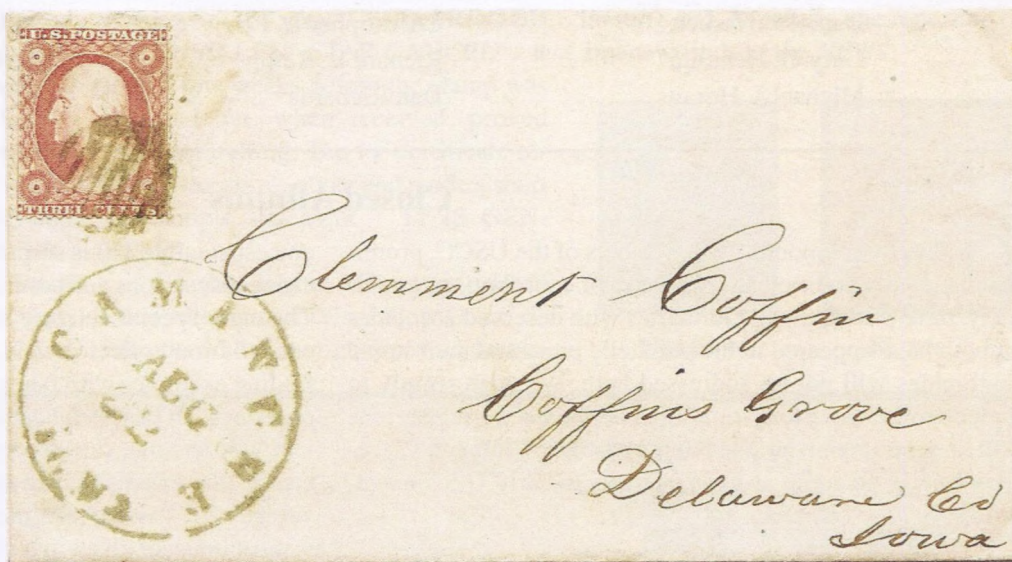 U.S. POSTAGE
THREE CENTS
CAMANCHE
AUG
IOWA
Clemment Coffin
Coffins Grove
Delaware Co
Iowa